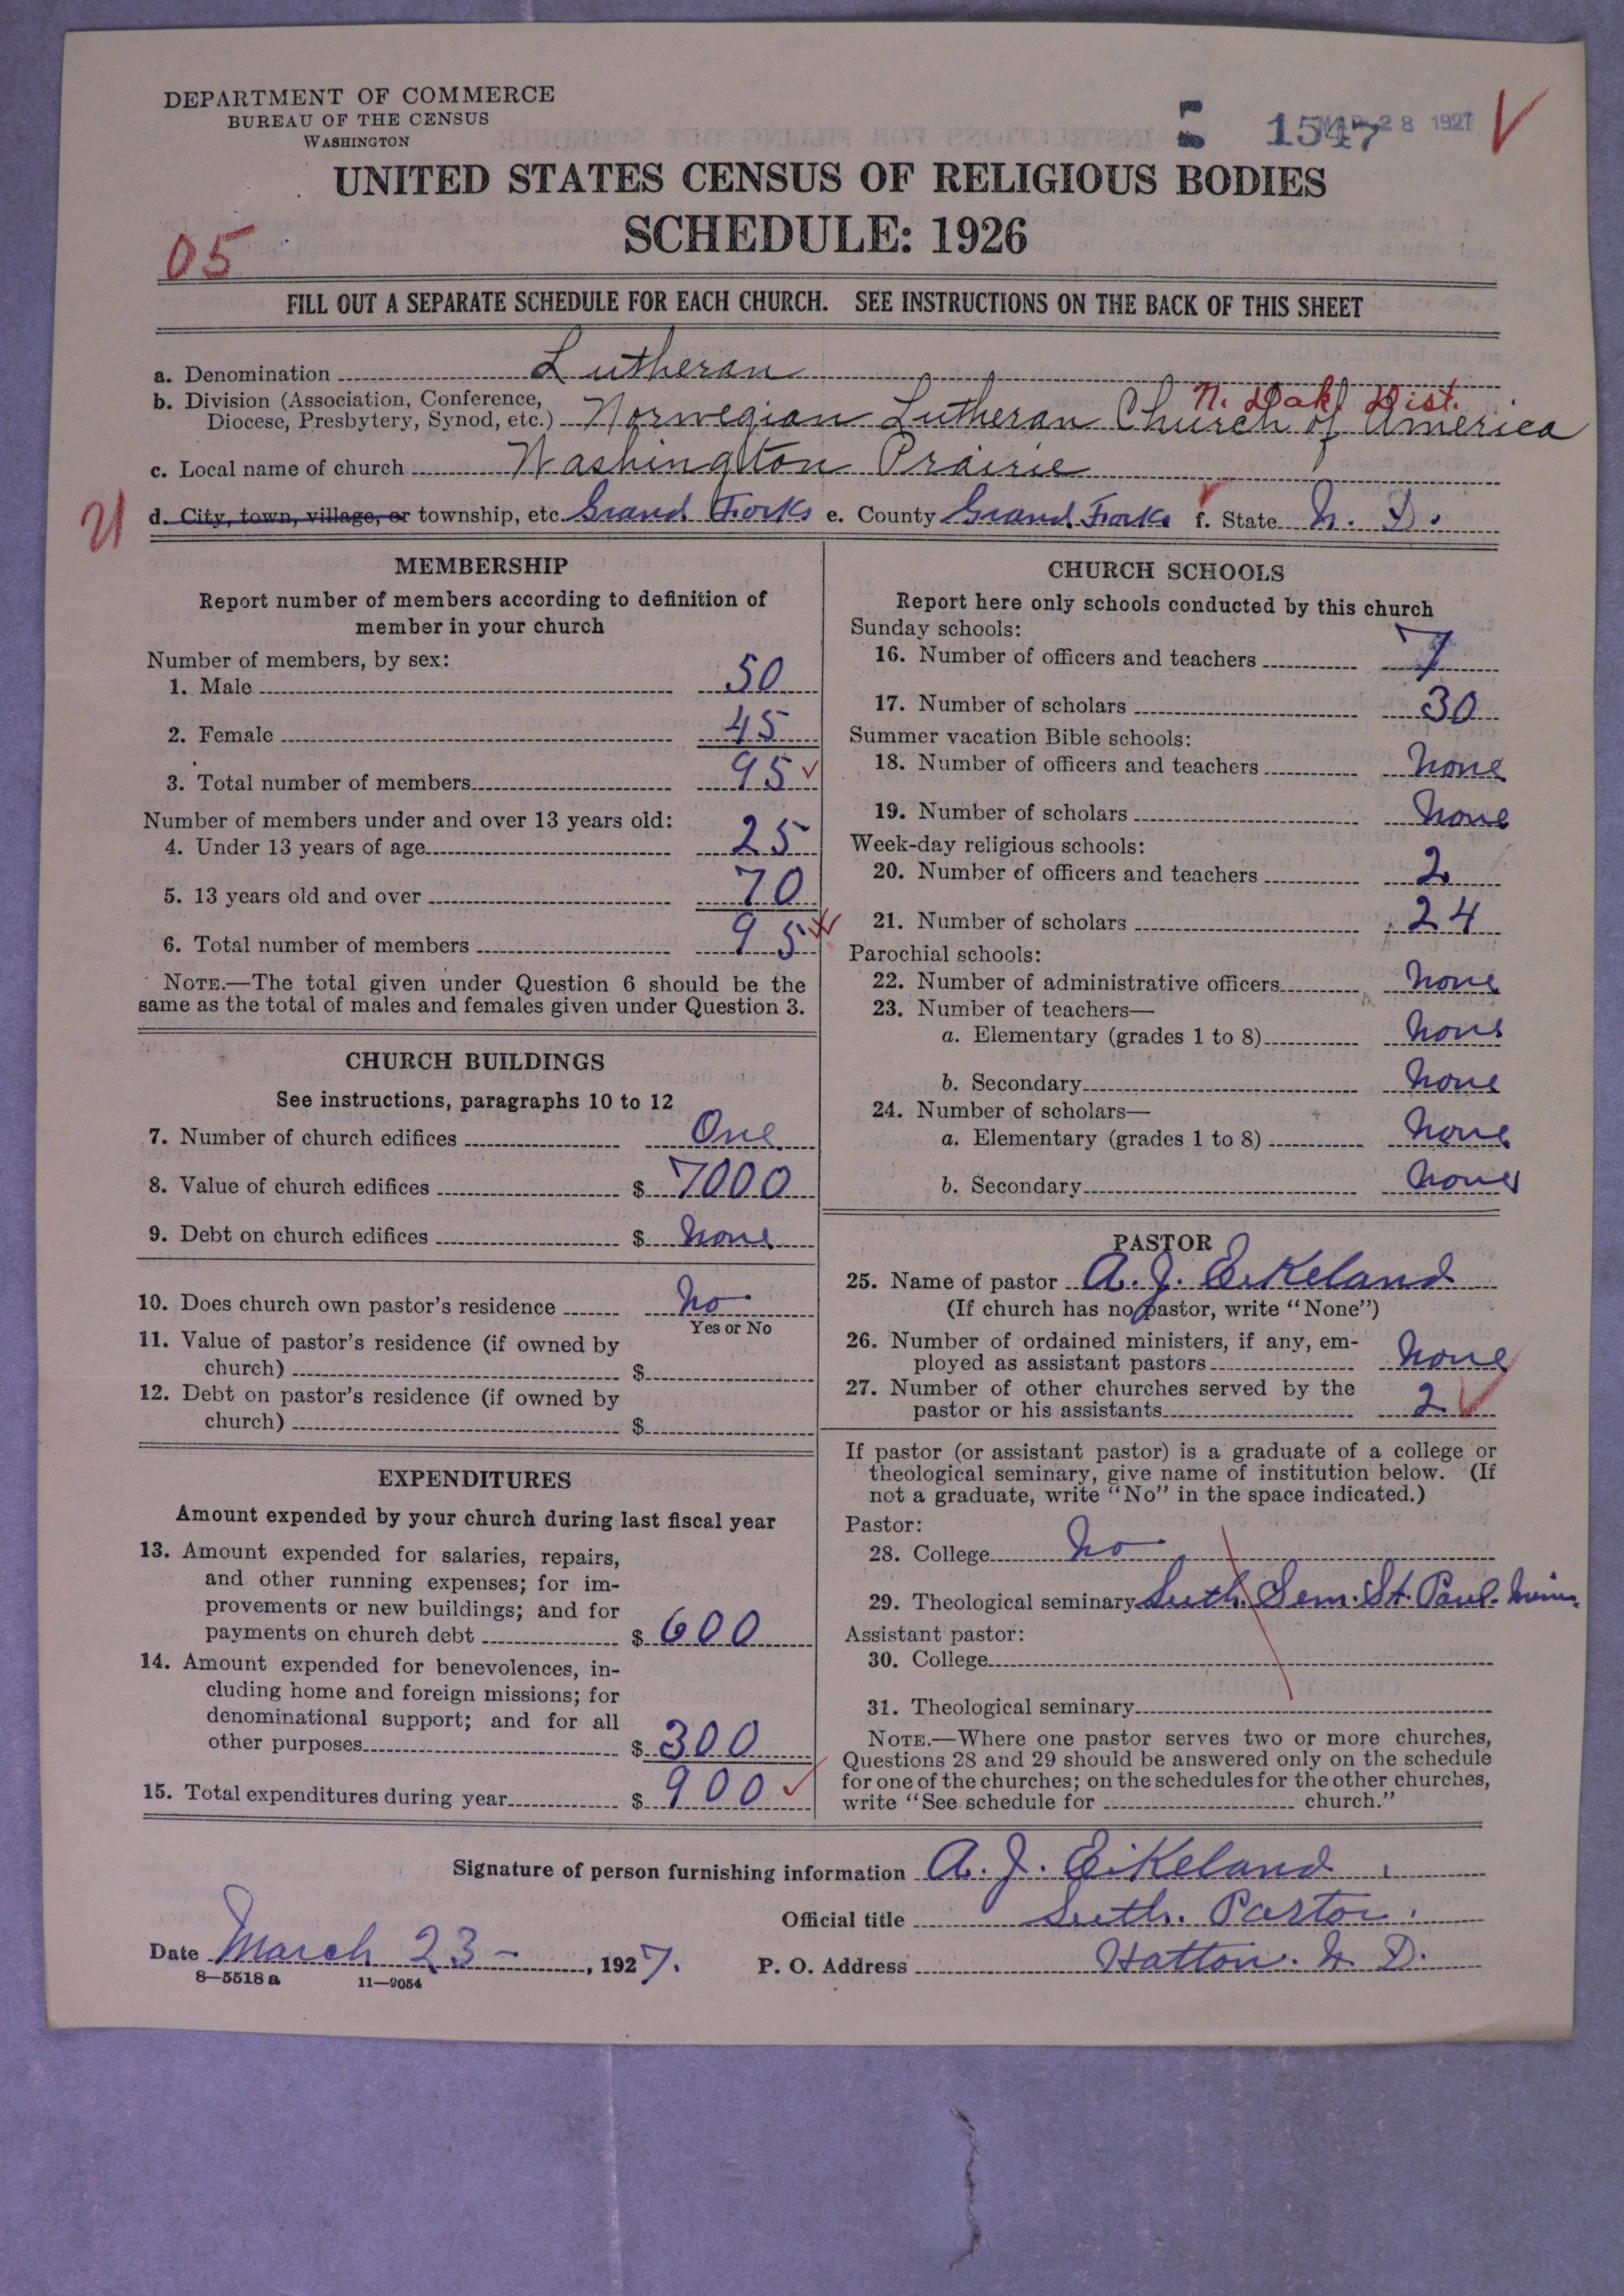 DEPARTMENT OF COMMERCE
BUREAU OF THE CENSUS
WASHINGTON
1547 28 1927
UNITED STATES CENSUS OF RELIGIOUS BODIES
SCHEDULE: 1926
05
FILL OUT A SEPARATE SCHEDULE FOR EACH CHURCH. SEE INSTRUCTIONS ON THE BACK OF THIS SHEET
a. Denomination Lutheran
N. Dak. Dist.
b. Division (Association, Conference,
Diocese, Presbytery, Synod, etc.) Norwegian Lutheran Church of America
c. Local name of church Washington Prairie
d. City, town, village, or township, etc. Grand Forks e. County Grand Forks f. State N. D.
MEMBERSHIP
Report number of members according to definition of
member in your church
Number of members, by sex:
1. Male 50
2. Female 45
3. Total number of members 95
Number of members under and over 13 years old:
4. Under 13 years of age 25
5. 13 years old and over 70
6. Total number of members 95
NOTE.—The total given under Question 6 should be the
same as the total of males and females given under Question 3.
CHURCH BUILDINGS
See instructions, paragraphs 10 to 12
7. Number of church edifices One
8. Value of church edifices $ 7000
9. Debt on church edifices $ none
10. Does church own pastor's residence No
Yes or No
11. Value of pastor's residence (if owned by
church) $
12. Debt on pastor's residence (if owned by
church) $
EXPENDITURES
Amount expended by your church during last fiscal year
13. Amount expended for salaries, repairs,
and other running expenses; for im-
provements or new buildings; and for
payments on church debt $ 600
14. Amount expended for benevolences, in-
cluding home and foreign missions; for
denominational support; and for all
other purposes $ 300
15. Total expenditures during year $ 900
CHURCH SCHOOLS
Report here only schools conducted by this church
Sunday schools:
16. Number of officers and teachers 7
17. Number of scholars 30
Summer vacation Bible schools:
18. Number of officers and teachers None
19. Number of scholars None
Week-day religious schools:
20. Number of officers and teachers 2
21. Number of scholars 24
Parochial schools:
22. Number of administrative officers None
23. Number of teachers—
a. Elementary (grades 1 to 8) None
b. Secondary None
24. Number of scholars—
a. Elementary (grades 1 to 8) None
b. Secondary None
PASTOR
25. Name of pastor A. J. Eikeland
(If church has no pastor, write "None")
26. Number of ordained ministers, if any, em-
ployed as assistant pastors None
27. Number of other churches served by the
pastor or his assistants 2
If pastor (or assistant pastor) is a graduate of a college or
theological seminary, give name of institution below. (If
not a graduate, write "No" in the space indicated.)
Pastor:
28. College No
29. Theological seminary Luth. Sem. St. Paul. Minn.
Assistant pastor:
30. College
31. Theological seminary
NOTE.—Where one pastor serves two or more churches,
Questions 28 and 29 should be answered only on the schedule
for one of the churches; on the schedules for the other churches,
write "See schedule for church."
Signature of person furnishing information A. J. Eikeland
Official title Luth. Pastor.
Date March 23 - , 1927. P. O. Address Hatton. N. D.
8—5518 a 11—9054